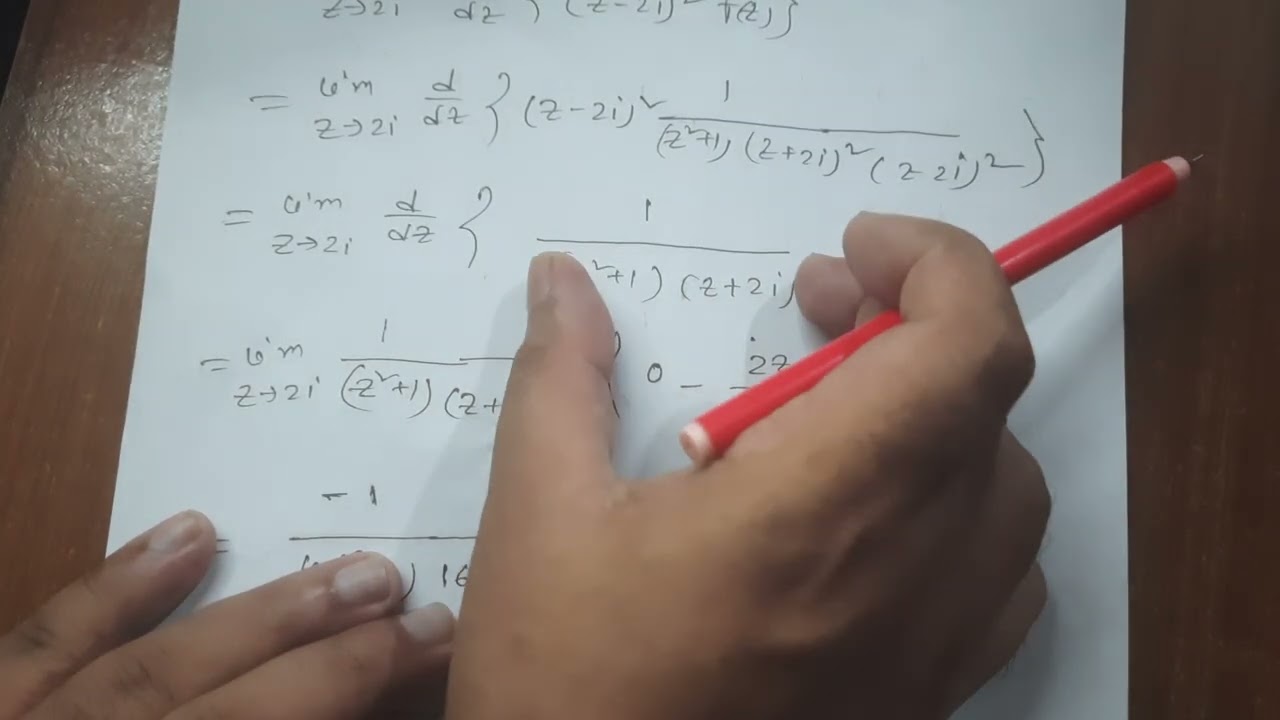 z→2i d/dz } (z-2i)² f(z)}
= lim z→2i d/dz { (z-2i)² 1/((z²+1) (z+2i)² (z-2i)²) }
= lim z→2i d/dz { 1/(²+1) (z+2i)
= lim z→2i 1/((z²+1) (z+ 0 - 2z
= -1/ ) 16